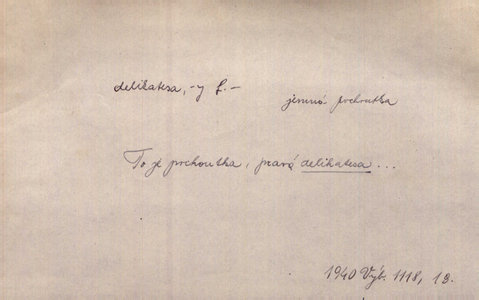 delikatesa, -y f. –
jemná pochoutka
To je pochoutka, pravá delikatesa...
1940 Výb. 1118, 13.